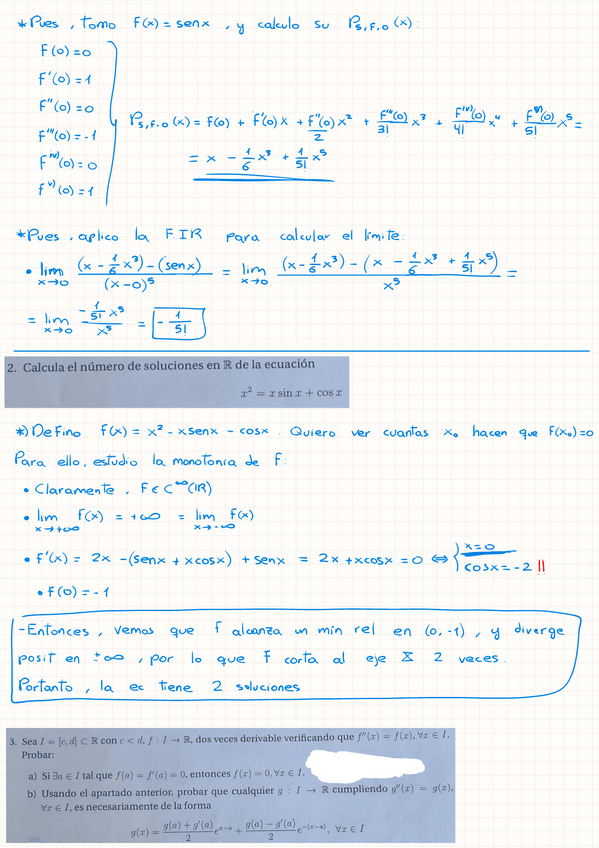 *Pues, tomo f(x) = senx, y calculo su P₅,f,₀(x):
f(0) = 0
f'(0) = 1
f''(0) = 0
f'''(0) = -1
f^iv)(0) = 0
f^v)(0) = 1
P₅,f,₀(x) = f(0) + f'(0)x + f''(0)/2 x² + f'''(0)/3! x³ + f^iv)(0)/4! x⁴ + f^v)(0)/5! x⁵ =
= x - 1/6 x³ + 1/5! x⁵
*Pues, aplico la FIR para calcular el límite:
• lim x→0 (x - 1/6 x³) - (senx) / (x-0)⁵ = lim x→0 (x - 1/6 x³) - (x - 1/6 x³ + 1/5! x⁵) / x⁵ =
= lim x→0 -1/5! x⁵ / x⁵ = - 1/5!
2. Calcula el número de soluciones en ℝ de la ecuación
x² = x sin x + cos x
*) Defino f(x) = x² - xsenx - cosx. Quiero ver cuantas x₀ hacen que f(x₀) = 0
Para ello, estudio la monotonía de f:
• Claramente, f ∈ C^∞(ℝ)
• lim x→+∞ f(x) = +∞ = lim x→-∞ f(x)
• f'(x) = 2x - (senx + xcosx) + senx = 2x + xcosx = 0 ⇔ { x = 0
cosx = -2 !!
• f(0) = -1
-Entonces, vemos que f alcanza un min rel en (0,-1), y diverge
posit en ±∞, por lo que f corta al eje X 2 veces.
Portanto, la ec tiene 2 soluciones
3. Sea I = [c, d] ⊂ ℝ con c < d, f : I → ℝ, dos veces derivable verificando que f''(x) = f(x), ∀x ∈ I.
Probar:
a) Si ∃a ∈ I tal que f(a) = f'(a) = 0, entonces f(x) = 0, ∀x ∈ I.
b) Usando el apartado anterior, probar que cualquier g : I → ℝ cumpliendo g''(x) = g(x),
∀x ∈ I, es necesariamente de la forma
g(x) = g(a) + g'(a)/2 e^(x-a) + g(a) - g'(a)/2 e^-(x-a), ∀x ∈ I